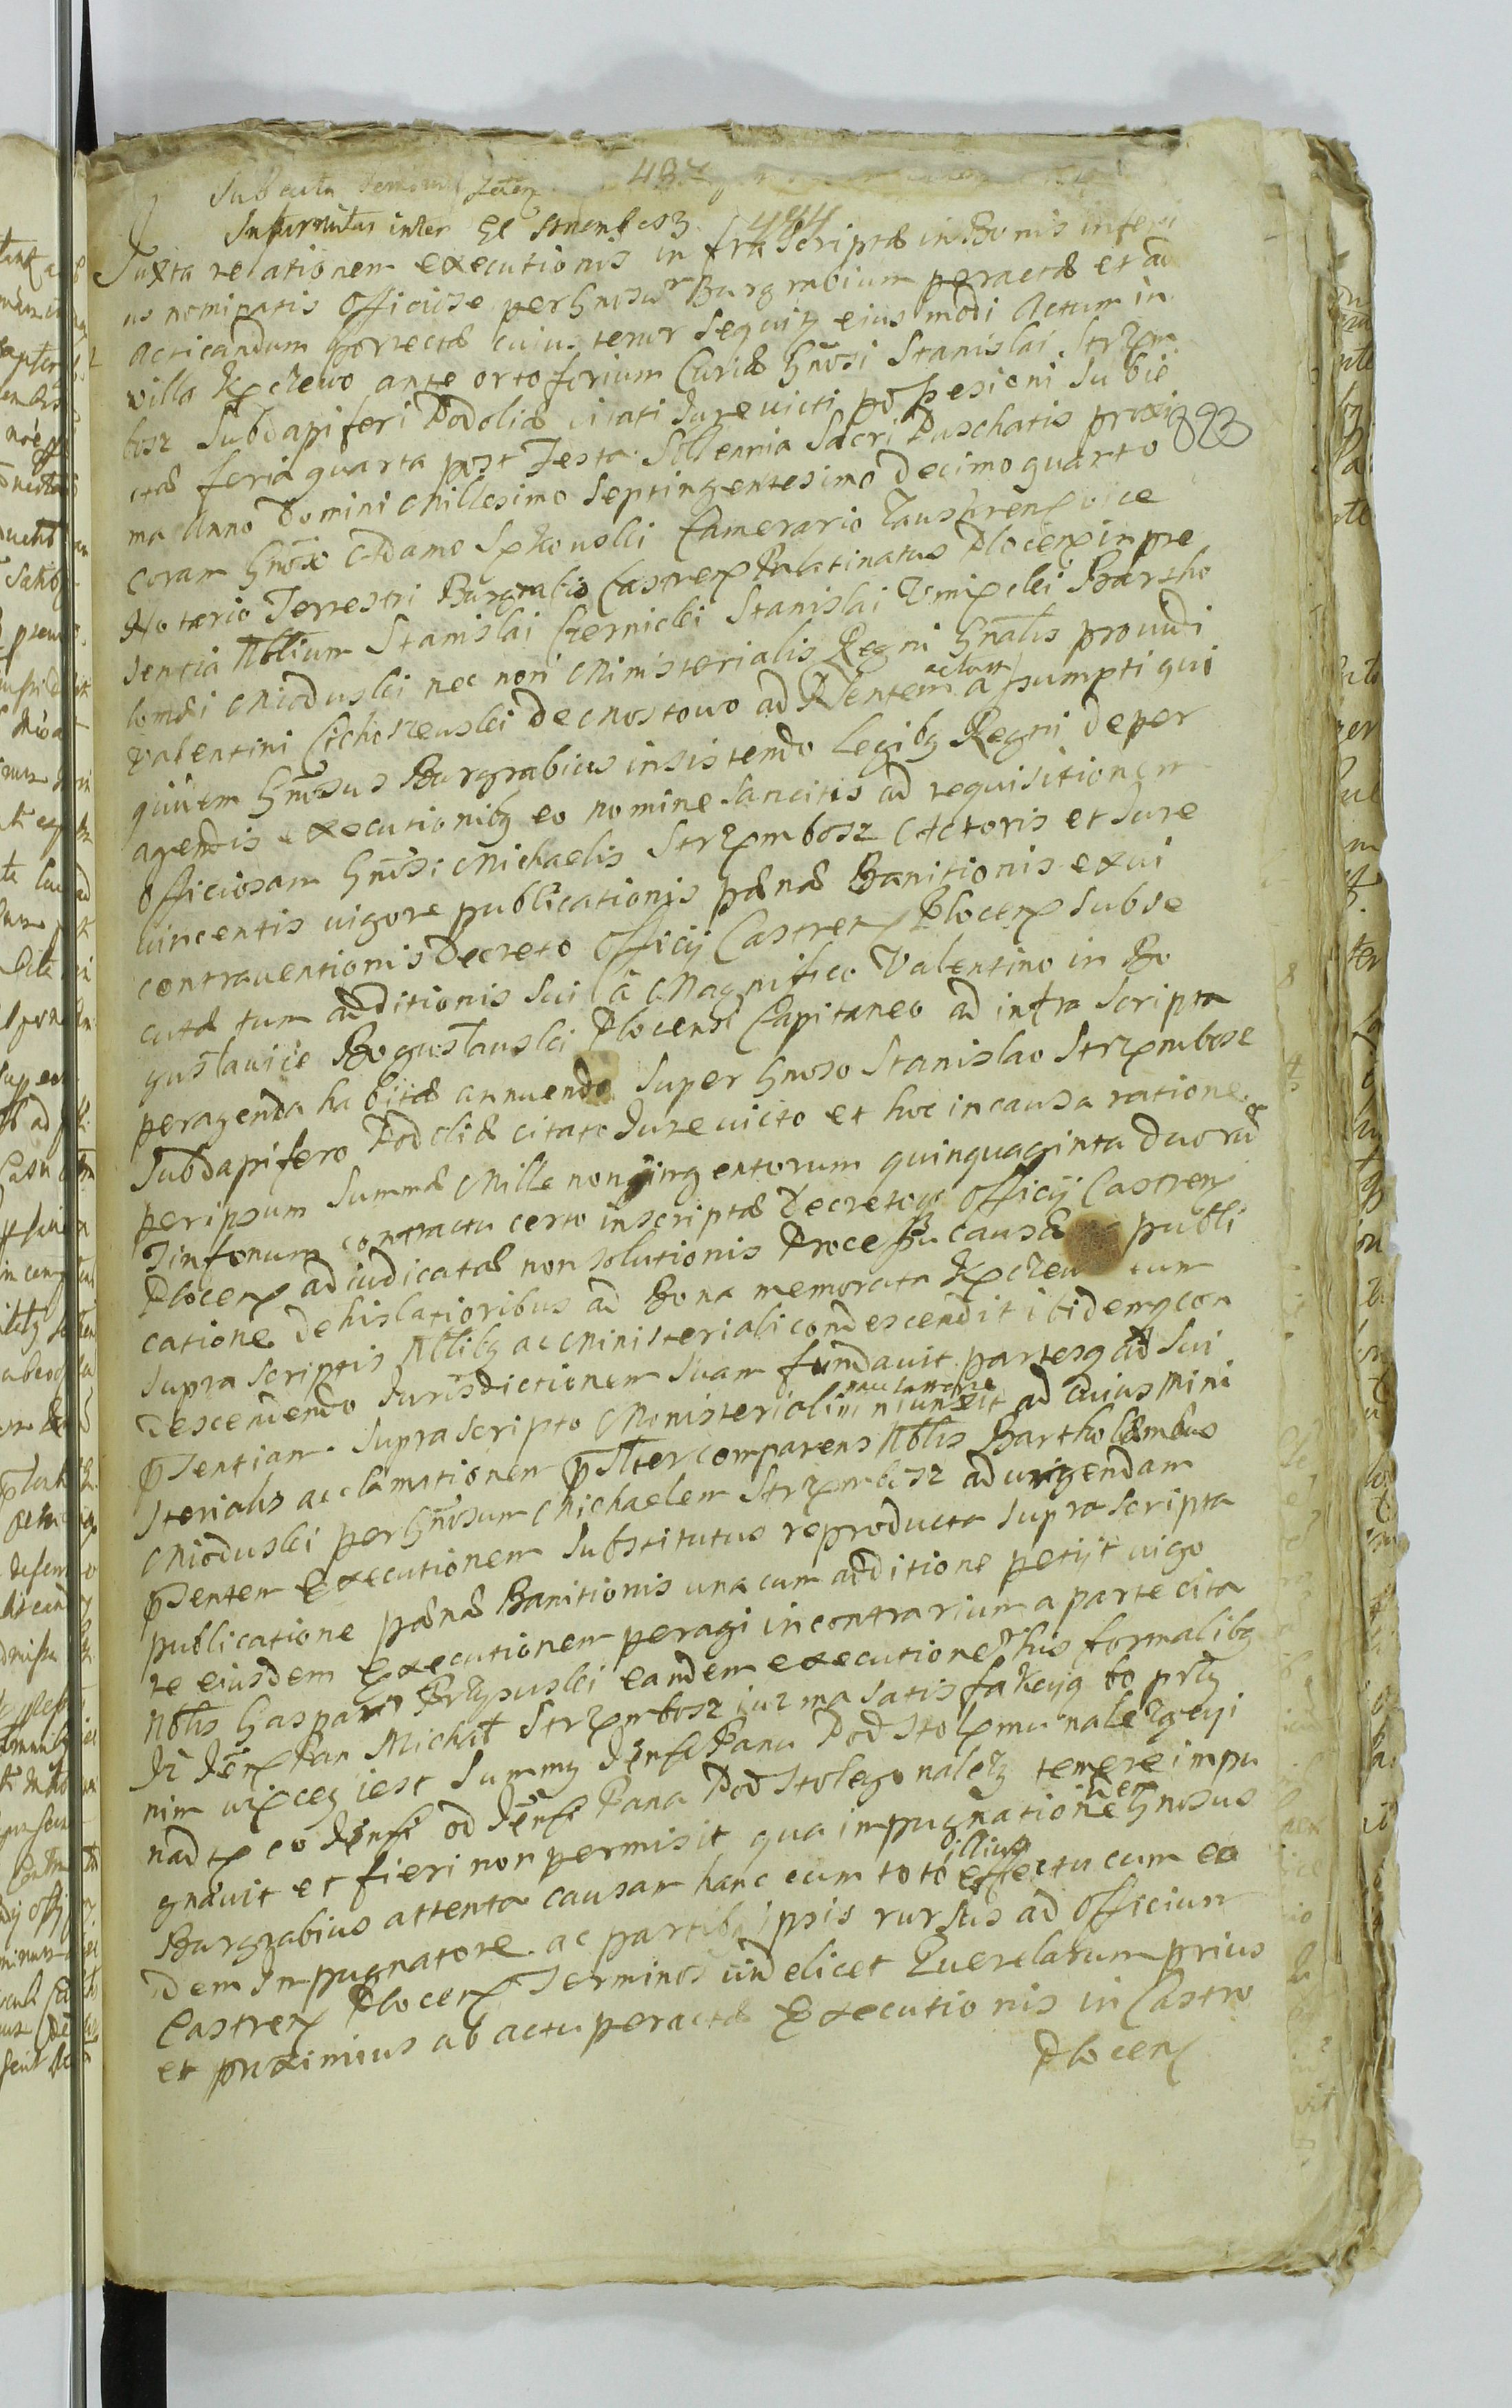 487
484
893
Juxta relationem executionis infra scriptæ in Bonis inferi
us nominatis Officiose per Gnosum Burgrabium peractæ et ad
acticandum porrectæ cuius tenor sequitur eiusmodi Actum in
villa ante ortoforium Curiæ Gnosi Stanislai Strzem
bosz Subdapiferi Podoliæ citati Jurevicti possesioni Subie
ctæ feria quarta post Festa Sollennia Sacri Paschatis proxi
ma Anno Domini Millesimo Septingentesimo decimo quarto
coram Gnoso Adamo Camerario vice
Notario Terrestri Burgrabio Castren Palatinatus Plocen in præ
sentia Nobilium Stanislai Czernicki Stanislai Bartho
lomæi Mioduski nec non Ministerialis Regni Gnalis providi
Valentini Cichoszewski de Mostowo ad Pntem actum assumpti qui
quidem Gnosus Burgrabius insistendo Legibq Regni de per
agendis executionibq eo nomine sancitis ad requisitionem
Officiosam Gnosi Michaelis Strzembosz Actoris et Jure
vincentis vigore publicationis pænæ Banitionis ex vi
contraventionis Decreto Officij Castren Plocen subse
cutæ tum additionis sui à Magnifico Valentino in Bo
gusławice Bogusławski Plocensi Capitaneo ad infra scripta
peragenda habitæ annuendo super Gnoso Stanislao Strzembosz
Subdapifero Podoliæ citato Jurevicto et hoc in causa ratione
per ipsum Summæ Mille nongingentorum quinquaginta duorum
Tinfonum contractu certo inscriptæ Decretoq Officij Castren
Plocen adiudicatæ non solutionis Processu causæ publi
catione de his latioribus ad Bona memorata cum
supra scriptis Nobilibq ac Ministeriali condescendit ibidemq con
descendendo Jurisdictionem suam fundavit partesq ad sui
Pntiam supra scripto Ministeriali iniunxit ad cuius Mini
sterialis acclamationem comparens Noblis Bartholæmeus
Mioduski per Gnosum Michaelem Strzembosz ad urgendam
Pntem Executionem substitutus reproducta supra scripta
publicatione pænæ Banitionis una cum additione petijt vigo
re eiusdem Executionem peragi in contrarium a parte cita
Noblis Gaspar Przypuski eandem executionem his formalibq
Iż Jmę Pan Michał Strzembosz iuz ma satisfakcyią bo przy
nim więcey iest summy Jmści Panu Podstolemu należącyi
nad tę co Jmści od Jmści Pana Podstolego nalezy temere impu
gnavit et fieri non permisit qua impugnatione idem Gnosus
Burgrabius attenta causam hanc cum toto illius effectu cum eo
dem Impugnatore ac partibq ipsis rursus ad Officium
Castren Plocen Terminos videlicet Querelarum prius
et proximius ab actu peractæ Executionis in Castro
Plocen